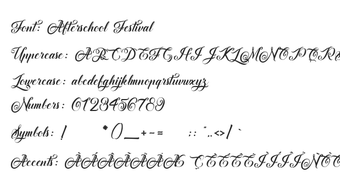 Font: Afterschool Festival
Uppercase: ABCDEFGHIJKLMNOPQR
Lowercase: abcdefghijklmnopqrstuvwxyz
Numbers: 0123456789
Symbols: / *()_+-= :: "..<>/ `
Accents: ÀÁÂÃÄÅÆ ÇÈÉÊËÌÍÎÏÑÒ